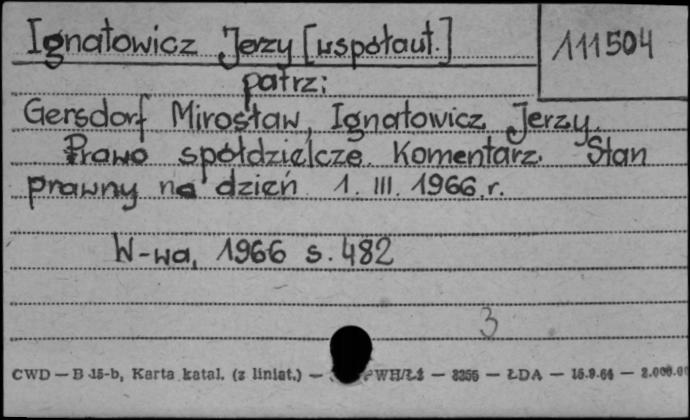 Ignatowicz Jerzy [współaut.]
111504
patrz:
Gersdorf Mirosław, Ignatowicz Jerzy.
Prawo spółdzielcze. Komentarz. Stan
prawny na dzień 1. III. 1966.r.
W-wa, 1966 s. 482
3
CWD — B 15-b, Karta katal. (z liniat.) — WH/Łż — 3256 — ŁDA — 15.9.64 —